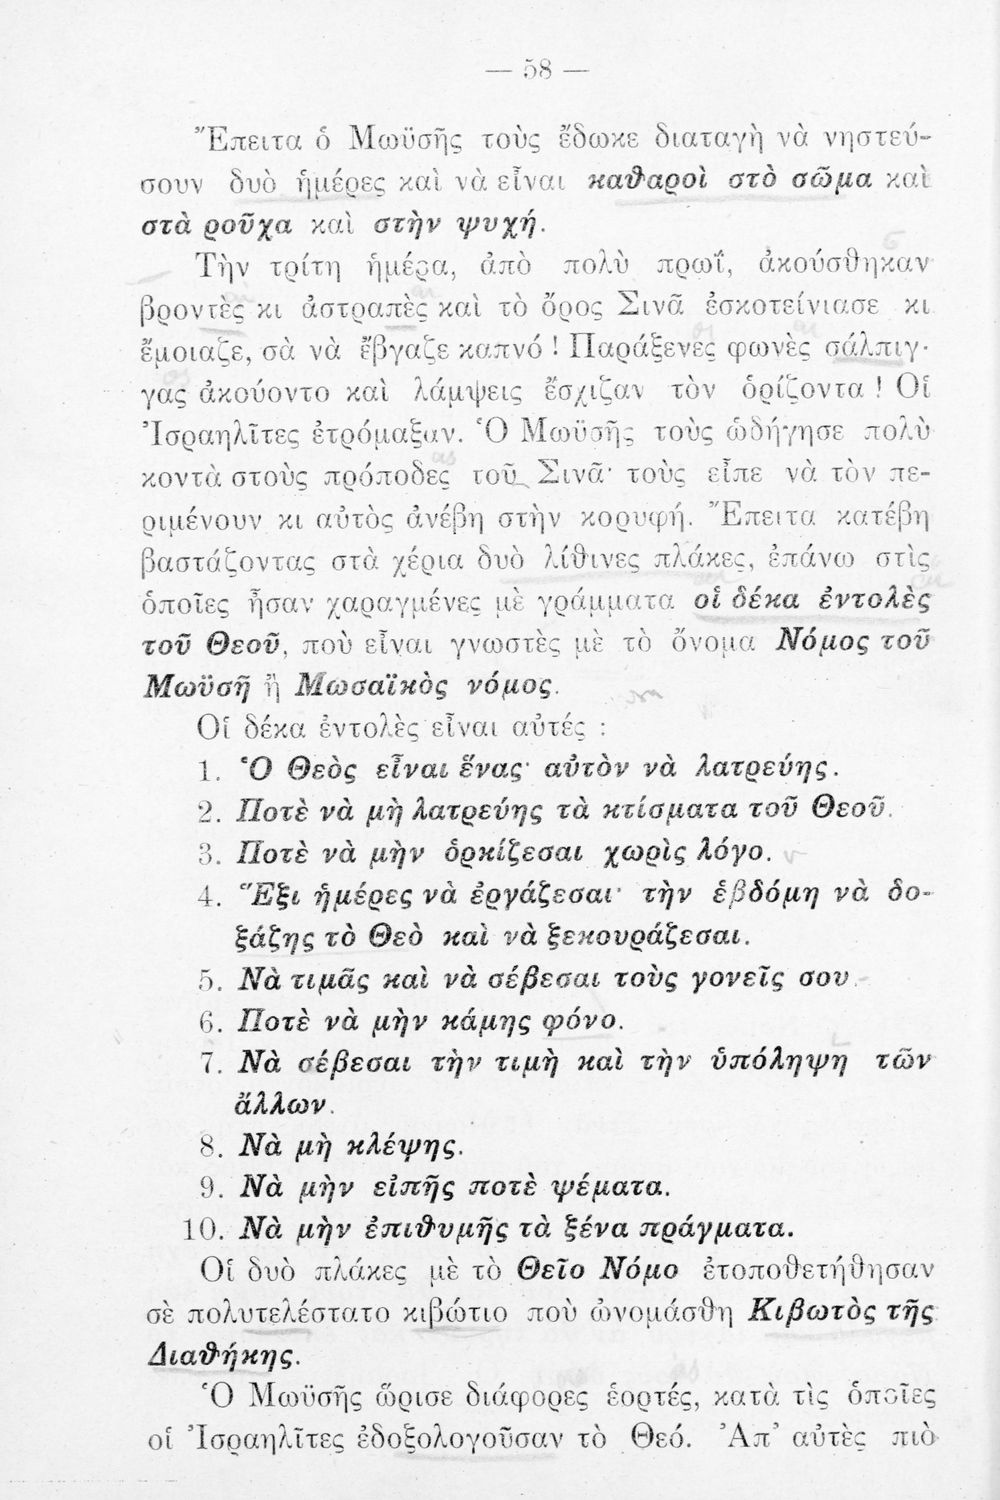 — 58 —
Ἔπειτα ὁ Μωϋσῆς τοὺς ἔδωκε διαταγὴ νὰ νηστεύ-
σουν δυὸ ἡμέρες καὶ νὰ εἶναι καθαροὶ στὸ σῶμα καὶ
στὰ ροῦχα καὶ στὴν ψυχή.
Τὴν τρίτη ἡμέρα, ἀπὸ πολὺ πρωῒ, ἀκούσθηκαν
βροντὲς κι ἀστραπὲς καὶ τὸ ὄρος Σινᾶ ἐσκοτείνιασε κι
ἔμοιαζε, σὰ νὰ ἔβγαζε καπνό ! Παράξενες φωνὲς σάλπιγ-
γας ἀκούοντο καὶ λάμψεις ἔσχιζαν τὸν ὁρίζοντα ! Οἱ
Ἰσραηλῖτες ἐτρόμαξαν. Ὁ Μωϋσῆς τοὺς ὡδήγησε πολὺ
κοντὰ στοὺς πρόποδες τοῦ Σινᾶ· τοὺς εἶπε νὰ τὸν πε-
ριμένουν κι αὐτὸς ἀνέβη στὴν κορυφή. Ἔπειτα κατέβη
βαστάζοντας στὰ χέρια δυὸ λίθινες πλάκες, ἐπάνω στὶς
ὁποῖες ἦσαν χαραγμένες μὲ γράμματα οἱ δέκα ἐντολὲς
τοῦ Θεοῦ, ποὺ εἶναι γνωστὲς μὲ τὸ ὄνομα Νόμος τοῦ
Μωϋσῆ ἢ Μωσαϊκὸς νόμος.
Οἱ δέκα ἐντολὲς εἶναι αὐτές :
1. Ὁ Θεὸς εἶναι ἕνας· αὐτὸν νὰ λατρεύης.
2. Ποτὲ νὰ μὴ λατρεύης τὰ κτίσματα τοῦ Θεοῦ.
3. Ποτὲ νὰ μὴν ὁρκίζεσαι χωρὶς λόγο.
4. Ἕξι ἡμέρες νὰ ἐργάζεσαι· τὴν ἑβδόμη νὰ δο-
ξάζης τὸ Θεὸ καὶ νὰ ξεκουράζεσαι.
5. Νὰ τιμᾶς καὶ νὰ σέβεσαι τοὺς γονεῖς σου.
6. Ποτὲ νὰ μὴν κάμης φόνο.
7. Νὰ σέβεσαι τὴν τιμὴ καὶ τὴν ὑπόληψη τῶν
ἄλλων.
8. Νὰ μὴ κλέψης.
9. Νὰ μὴν εἰπῆς ποτὲ ψέματα.
10. Νὰ μὴν ἐπιθυμῆς τὰ ξένα πράγματα.
Οἱ δυὸ πλάκες μὲ τὸ Θεῖο Νόμο ἐτοποθετήθησαν
σὲ πολυτελέστατο κιβώτιο ποὺ ὠνομάσθη Κιβωτὸς τῆς
Διαθήκης.
Ὁ Μωϋσῆς ὥρισε διάφορες ἑορτές, κατὰ τὶς ὁποῖες
οἱ Ἰσραηλῖτες ἐδοξολογοῦσαν τὸ Θεό. Ἀπ' αὐτὲς πιὸ